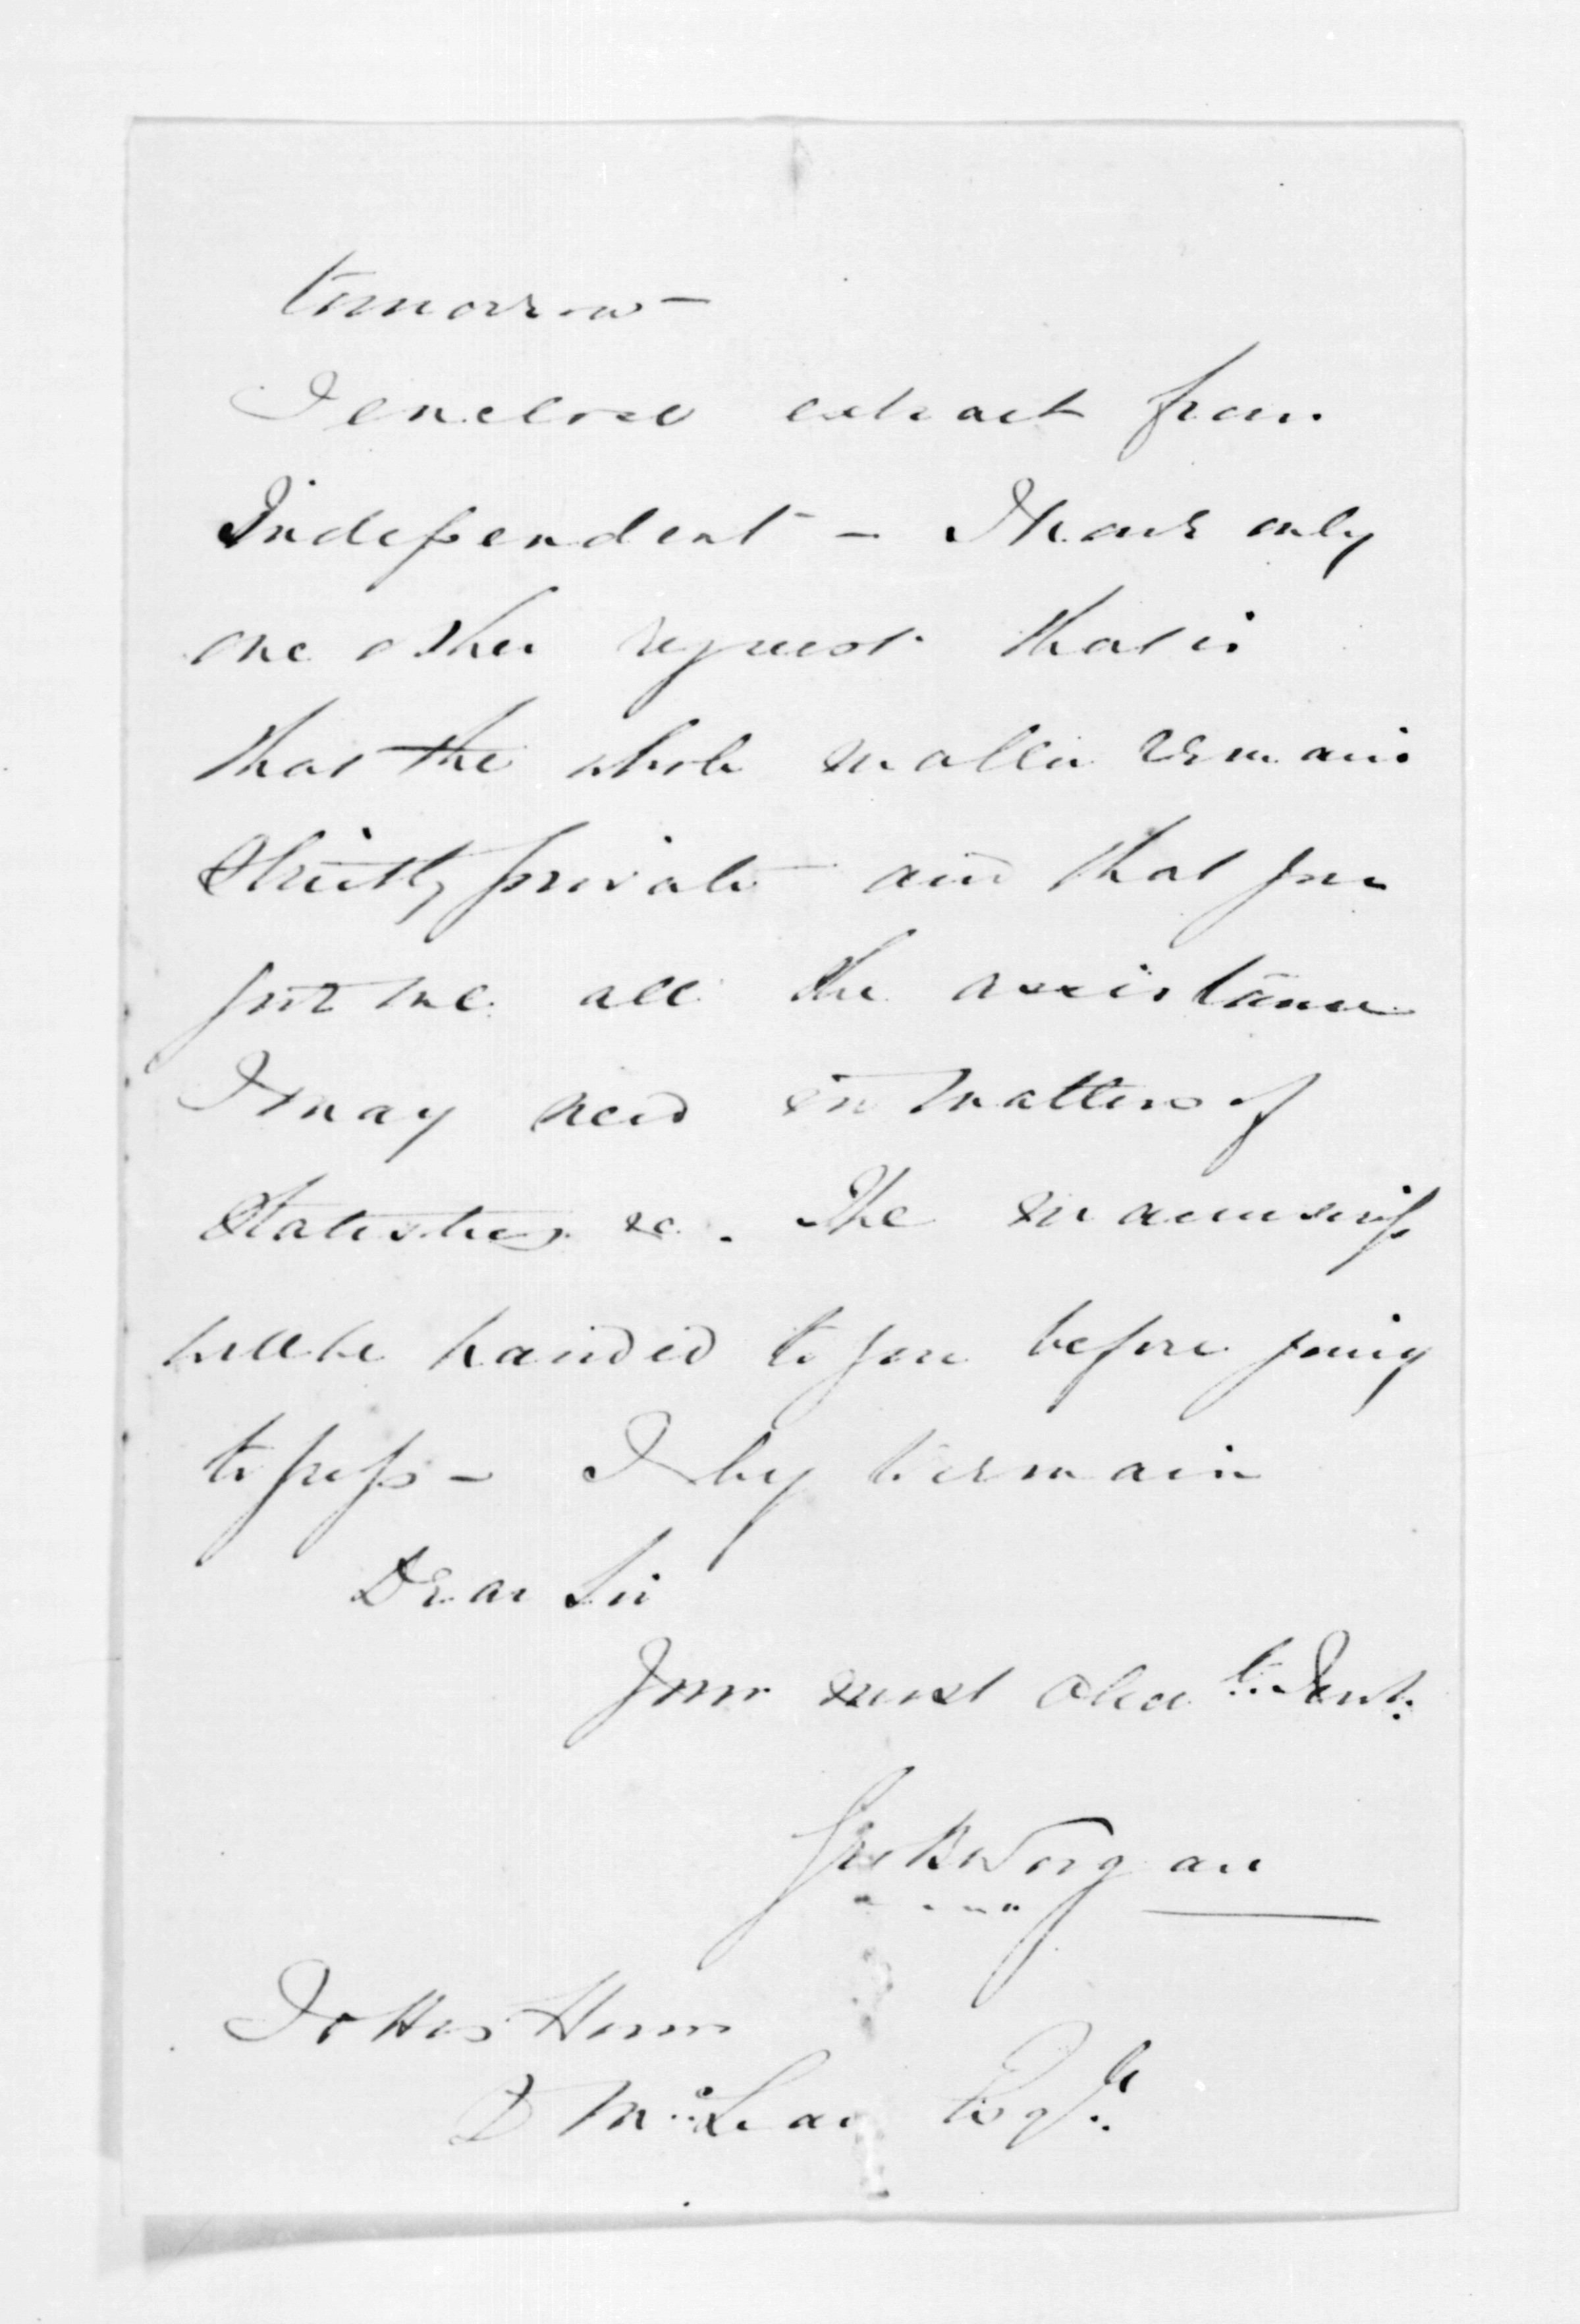 tomorrow –
I enclose extract from
Independent – I have only
one other request that is
that the whole matter remains
strictly private and that you
give me all the assistance
I may need in matters of
Statistics &c. The manuscript
will be handed to you before going
to press – I beg to remain
Dear Sir
Your most obedt. Servt.
Geo B Worgan
To His Honor
D McLean Esqr.